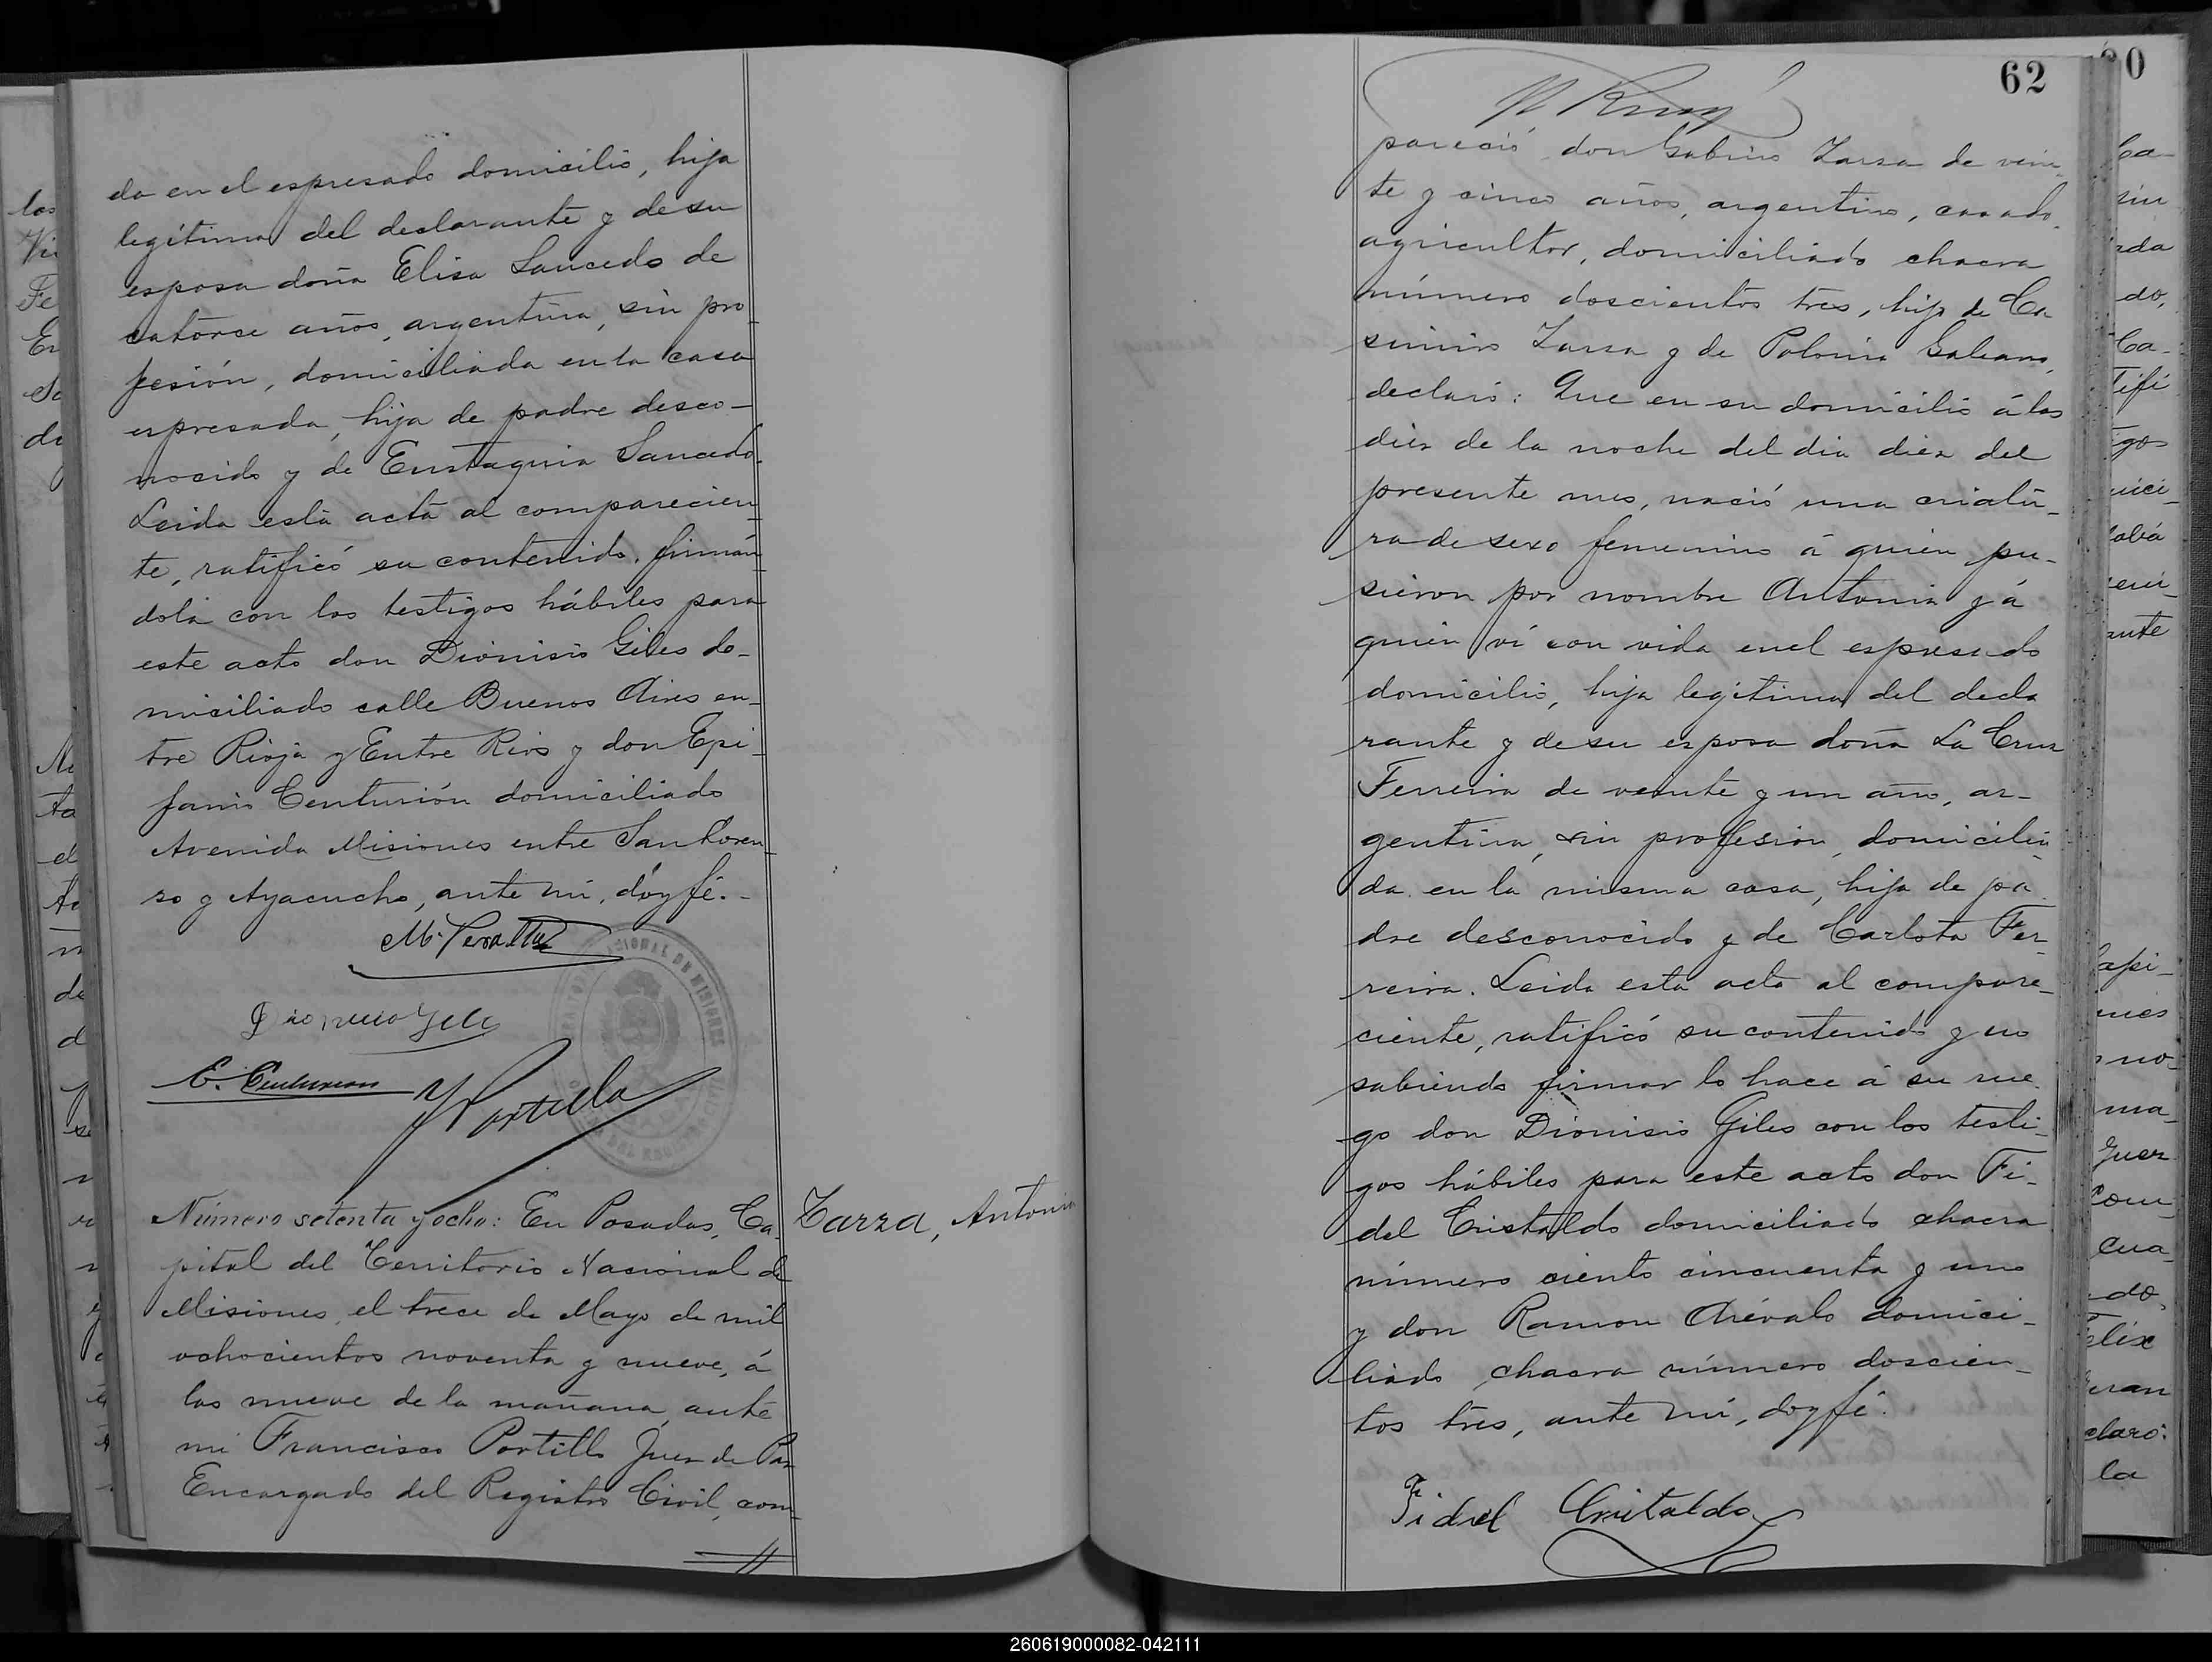 do en el espresado domicilio, hija
legítima del declarante y de su
esposa doña Elisa Saucedo de
catorce años, argentina, sin pro-
fesión, domiciliada en la casa
espresada, hija de padre desco-
nocido y de Eustaquia Saucedo.
Leida esta acta al comparecien-
te, ratificó su contenido, firmán-
dola con los testigos hábiles para
este acto don Dionisio Giles do-
miciliado calle Buenos Aires en-
tre Rioja y Entre Rios y don Epi-
fanio Centurión domiciliado
Avenida Misiones entre San Loren-
zo y Ayacucho, ante mi, doy fé.-
M. Peralta
E. Centurion
Portillo
Número setenta y ocho: En Posadas, Ca-
pital del Territorio Nacional de
Misiones, el trece de Mayo de mil
ochocientos noventa y nueve, á
las nueve de la mañana, ante
mi Francisco Portillo Juez de Paz
Encargado del Registro Civil, com-
Zarza, Antonia
62
pareció don Gabino Zarza de vein-
te y cinco años, argentino, casado,
agricultor, domiciliado chacra
número doscientos tres, hijo de Ca-
simiro Zarza y de Polonia Galeano,
declaró: Que en su domicilio á las
diez de la noche del dia diez del
presente mes, nació una criatu-
ra de sexo femenino á quien pu-
sieron por nombre Antonia y á
quien ví con vida en el espresado
domicilio, hija legítima del decla
rante y de su esposa doña La Cruz
Ferreira de veinte y un año, ar-
gentina, sin profesión, domicilia
da en la misma casa, hija de pa
dre desconocido y de Carlota Fer-
reira. Leida esta acta al compare-
ciente, ratificó su contenido y no
sabiendo firmar lo hace á su rue-
go don Dionisio Giles con los testi-
gos hábiles para este acto don Fi-
del Cristaldo domiciliado chacra
número ciento cincuenta y uno
y don Ramon Arévalo domici-
liado chacra número doscien-
tos tres, ante mi, doy fé.
Fidel Cristaldo
260619000082-042111